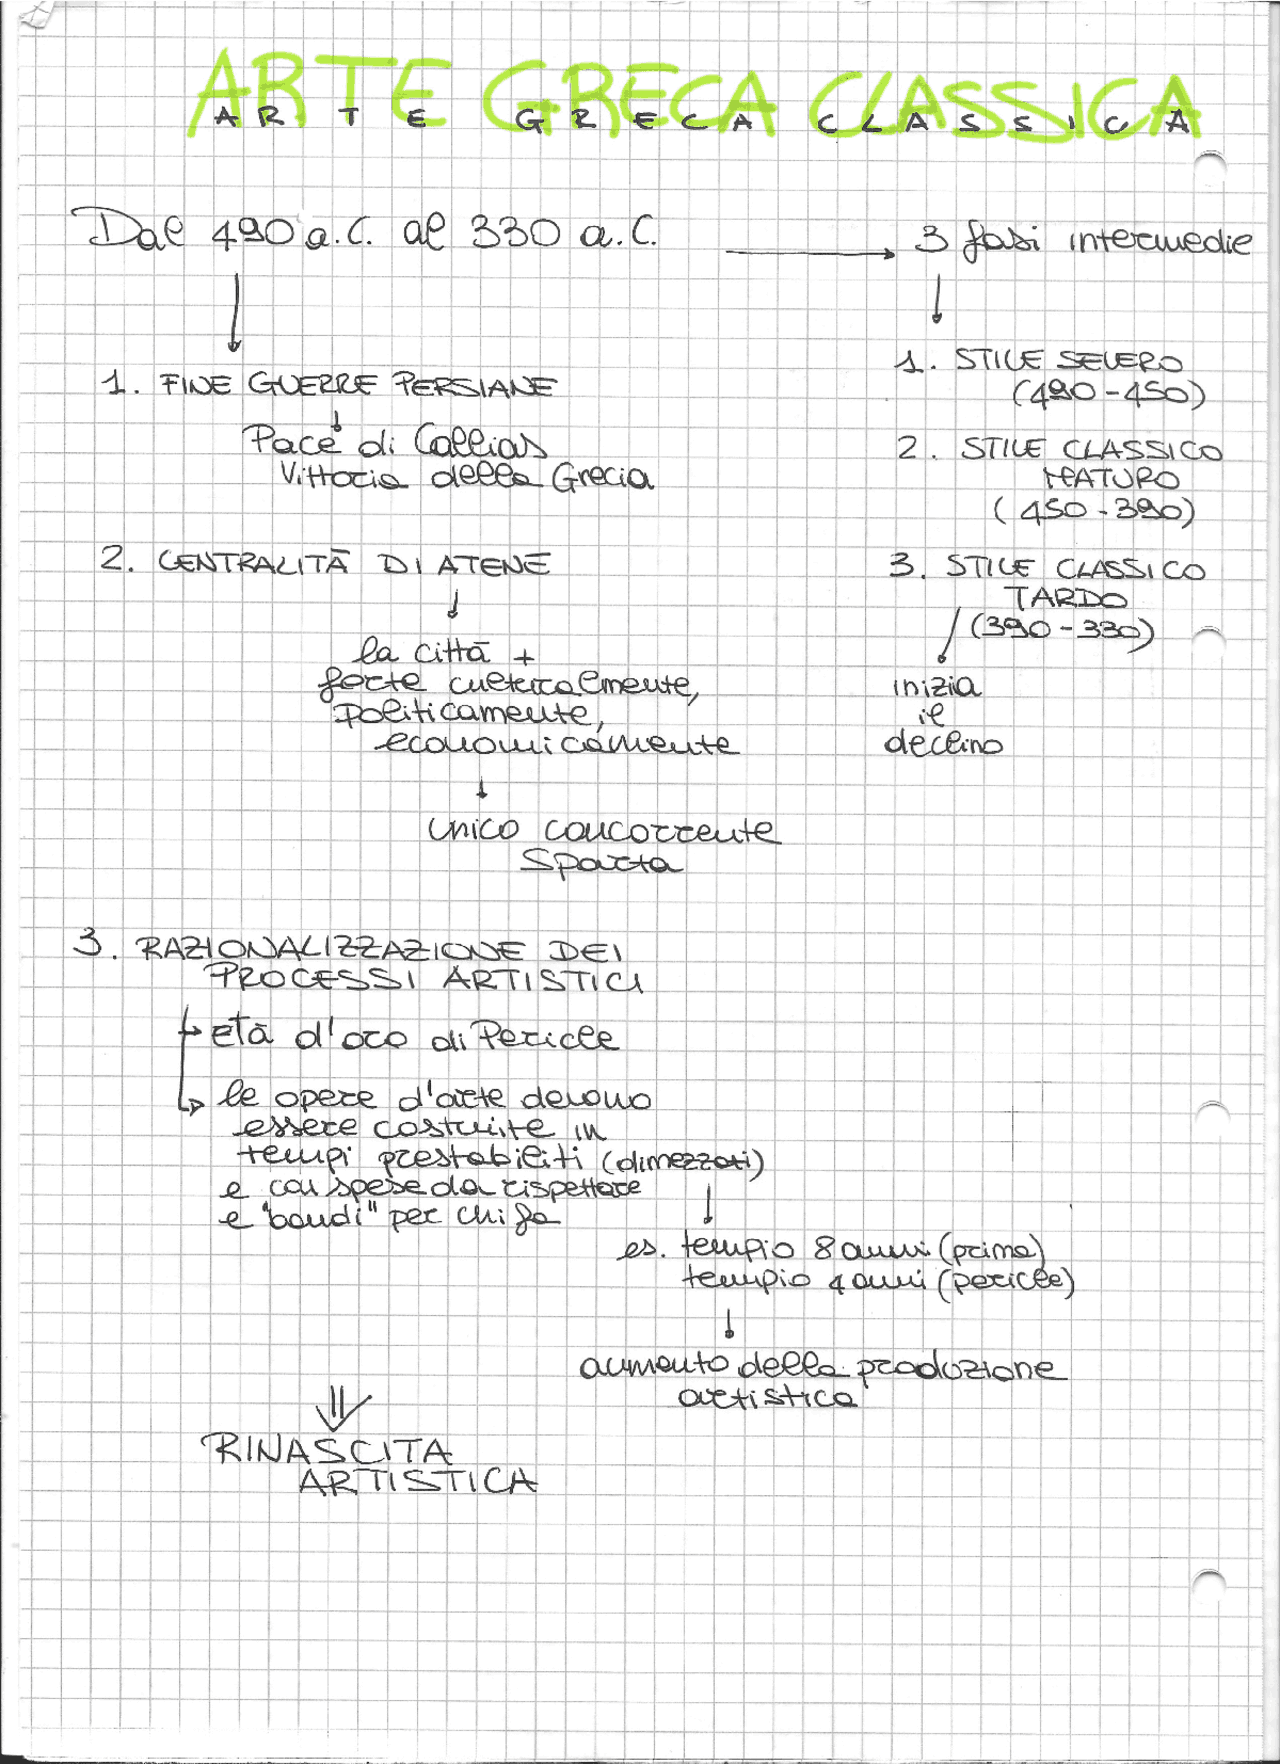 ARTE GRECA CLASSICA
ARTE GRECA CLASSICA
Dal 490 a.C. al 330 a.C.
1. FINE GUERRE PERSIANE
Pace di Callias
Vittoria della Grecia
2. CENTRALITÀ DI ATENE
la città +
forte culturalmente,
politicamente,
economicamente
unico concorrente
Sparta
3. RAZIONALIZZAZIONE DEI
PROCESSI ARTISTICI
età d'oro di Pericle
le opere d'arte devono
essere costruite in
tempi prestabiliti (dimezzati)
e con spese da rispettare
e "bandi" per chi fa
es. tempio 8 anni (prima)
tempio 4 anni (pericle)
aumento della produzione
artistica
RINASCITA
ARTISTICA
3 fasi intermedie
1. STILE SEVERO
(490-450)
2. STILE CLASSICO
MATURO
(450-390)
3. STILE CLASSICO
TARDO
(390-330)
inizia
il
declino